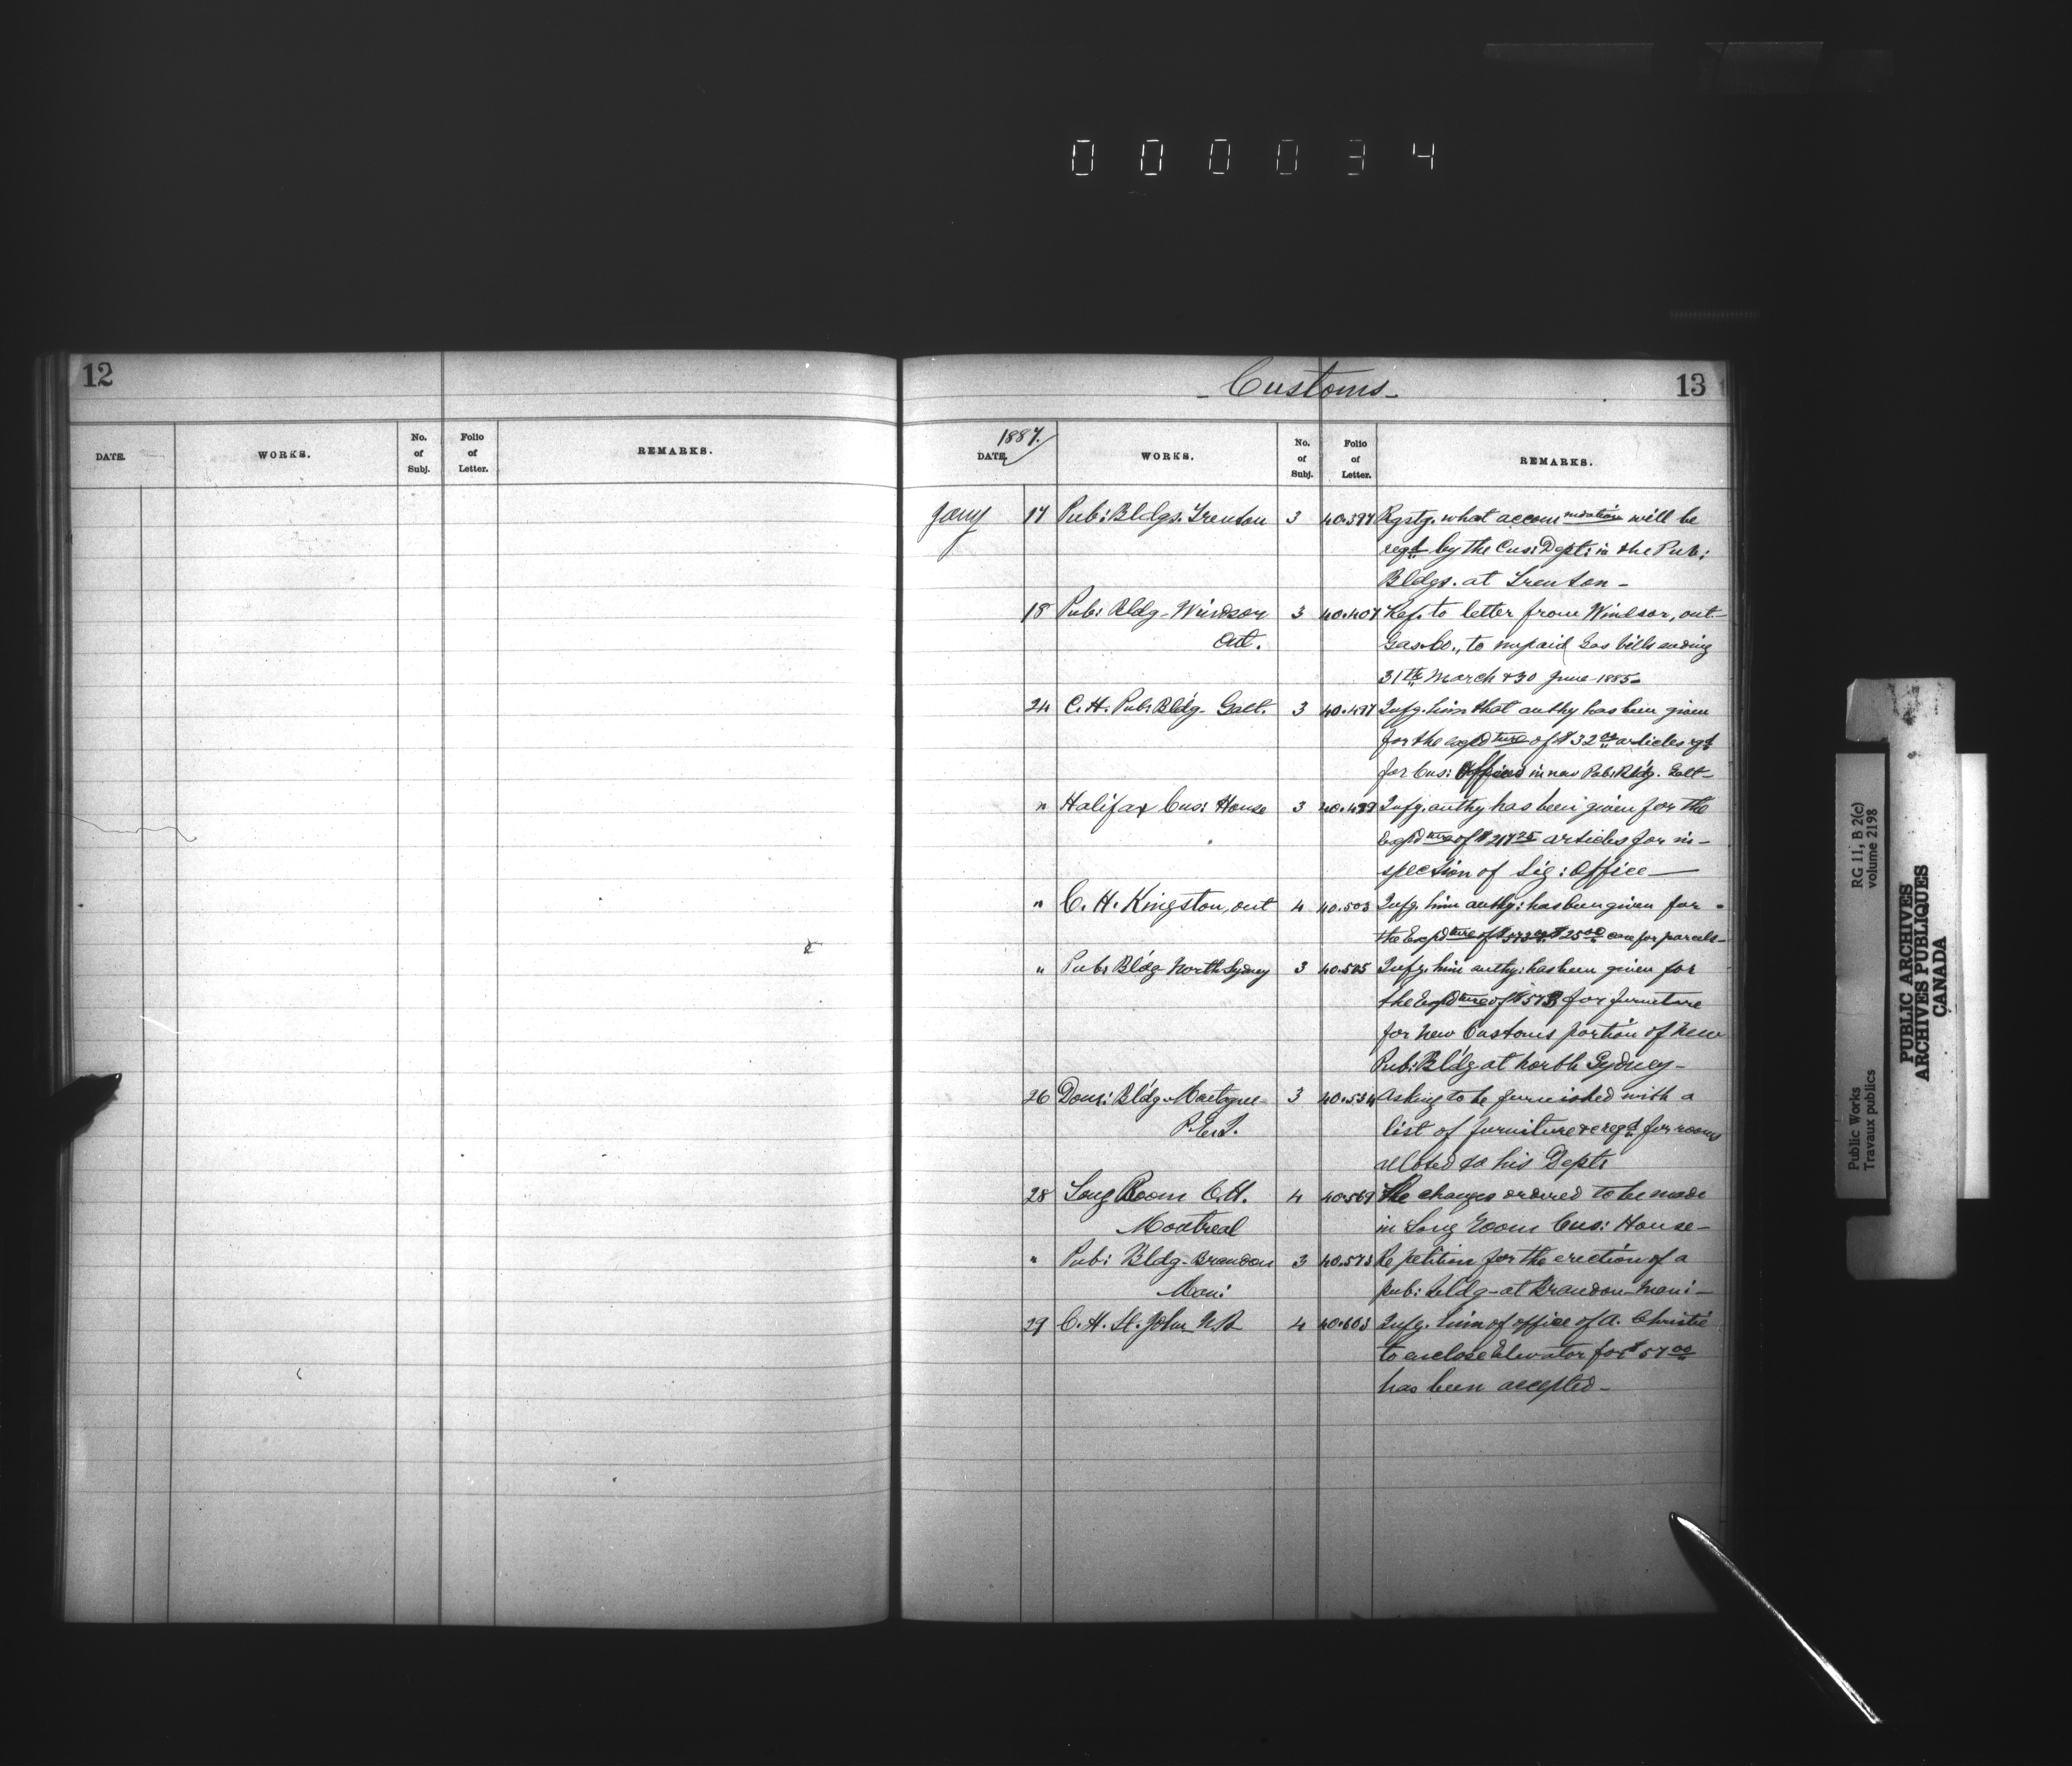 000034
12
DATE. WORKS. No. of Subj. Folio of Letter. REMARKS.
- Customs - 13
1887.
DATE. WORKS. No. of Subj. Folio of Letter. REMARKS.
Jany 17 Pub: Bldgs. Trenton 3 40.397 Rqstg. what accommodation will be
reqd by the Cus: Dept: in the Pub:
Bldgs. at Trenton -
18 Pub: Bldg - Windsor 3 40.407 Ref. to letter from Windsor, ont -
Ont. Gas Co., to unpaid Gas bills ending
31th March & 30 June 1885 -
24 C. H. Pub: Bldg - Galt. 3 40.497 Infg. him that authy has been given
for the expdture of $32 00 articles rqd
for Cus: Offices in new Pub: Bldg. Galt -
" Halifax Cus: House 3 40.499 Infg. authy has been given for the
Expdture of $217 25 articles for in-
spection of Sig: Office -
" C. H. Kingston, ont 4 40.503 Infg. him authy: has been given for
the Expdture of $25 00 case for parcels -
" Pub: Bldg North Sydney 3 40.505 Infg. him authy: has been given for
the Expdture of $573 for furniture
for new Customs portion of new
Pub: Bldg at North Sydney -
26 Dom: Bldg - Montague 3 40.534 Asking to be furnished with a
P.E.I. list of furniture &c reqd for rooms
alloted to his Dept:
28 Long Room C.H. 4 40.569 The changes ordered to be made
Montreal in Long Room Cus: House -
" Pub: Bldg - Brandon 3 40.573 Re petition for the erection of a
Man: pub: bldg - at Brandon Mani -
29 C. H. St. John N.B 4 40.603 Infg. him of office of A. Christie
to enclose Elevator for $57 00
has been accepted -
Public Works
Travaux publics
RG 11, B 2(c)
volume 2198
PUBLIC ARCHIVES
ARCHIVES PUBLIQUES
CANADA